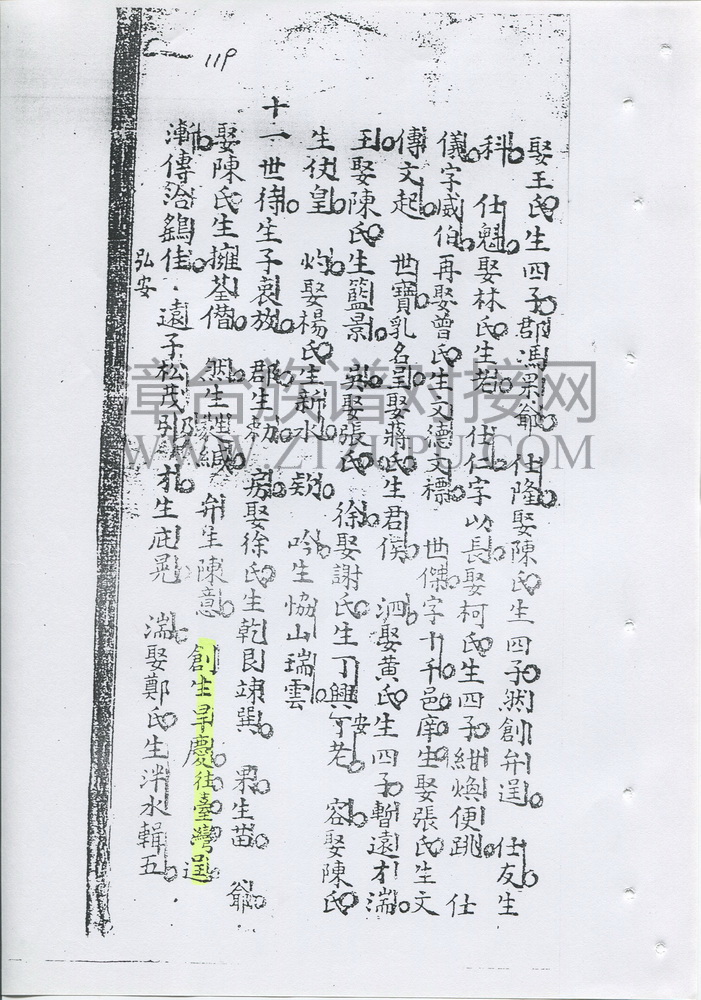 119
娶王氏生四子郡馮果爺 仕隆娶陳氏生四子然創弁逞 仕友生
科 仕魁娶林氏生老 仕仁字以長娶柯氏生四子紺煥便跳 仕
儀字威伯再娶曾氏生文德文標 世傑字十千邑庠生娶張氏生文
傳文起 世寶乳名呈娶蔣氏生君俟 泗娶黃氏生四子暫遠才湍
王娶陳氏生籃景 吳娶張氏 徐娶謝氏生丁興丁老 容娶陳氏
安
生伏皇 灼娶楊氏生新水 欵 吟生恊山瑞雲
十一世待生子衷放 郡生勑 房娶徐氏生乾艮竦巽 果生苗 爺
娶陳氏生擁荃僭 然生 緘 弁生陳意 創生旱慶往臺灣逞
漸傳洽鷂佳 遠子松茂 引 才生庇晃 湍娶鄭氏生泮水輯五
弘安
漳台族谱对接网
WWW.ZTZUPU.COM